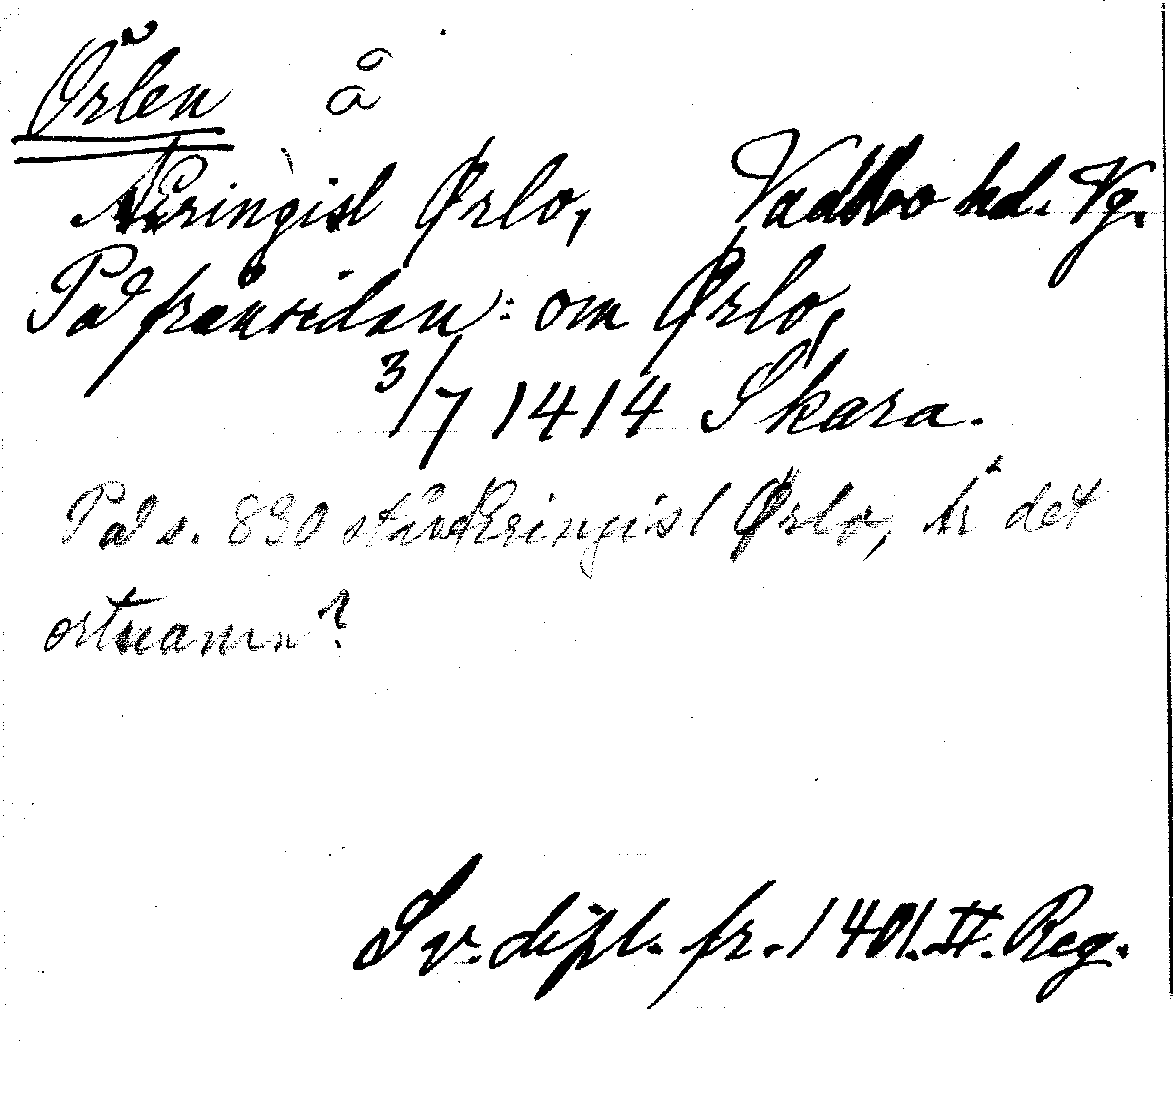 Örlen å
Æringisl Ørlo, Vadsbo hd. Vg.
På framsidan: om Ørlo,
3/7 1414 Skara.
På s. 830 står Æringisl Ørlo, är det
ortnamn?
Sv. dipl. fr. 1401. II. Reg.